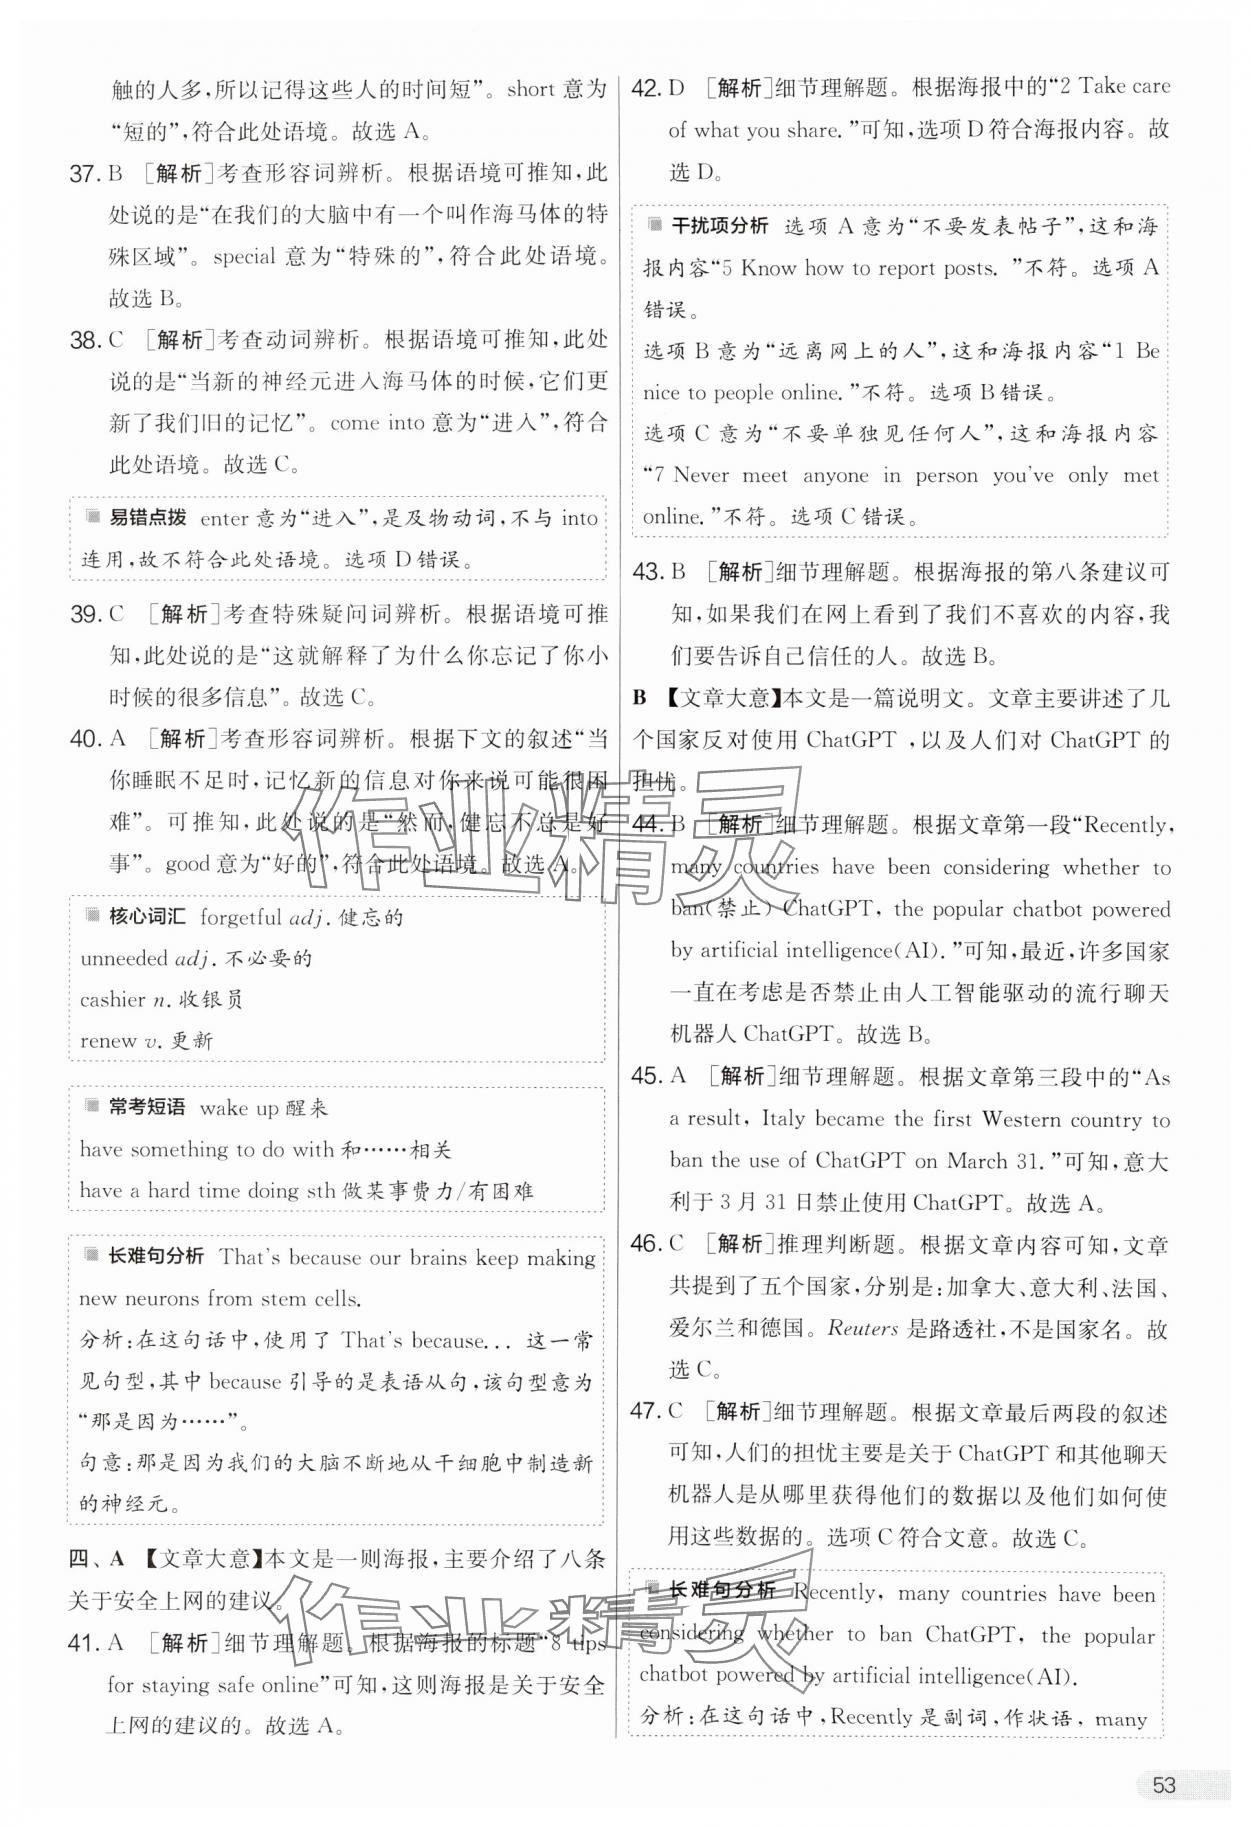 触的人多,所以记得这些人的时间短”。short 意为
“短的”,符合此处语境。故选 A。
37. B [解析]考查形容词辨析。根据语境可推知,此
处说的是“在我们的大脑中有一个叫作海马体的特
殊区域”。special 意为“特殊的”,符合此处语境。
故选 B。
38. C [解析]考查动词辨析。根据语境可推知,此处
说的是“当新的神经元进入海马体的时候,它们更
新了我们旧的记忆”。come into 意为“进入”,符合
此处语境。故选 C。
易错点拨 enter 意为“进入”,是及物动词,不与 into
连用,故不符合此处语境。选项 D 错误。
39. C [解析]考查特殊疑问词辨析。根据语境可推
知,此处说的是“这就解释了为什么你忘记了你小
时候的很多信息”。故选 C。
40. A [解析]考查形容词辨析。根据下文的叙述“当
你睡眠不足时,记忆新的信息对你来说可能很困
难”。可推知,此处说的是“然而,健忘不总是好
事”。good 意为“好的”,符合此处语境。故选 A。
核心词汇 forgetful adj. 健忘的
unneeded adj. 不必要的
cashier n. 收银员
renew v. 更新
常考短语 wake up 醒来
have something to do with 和……相关
have a hard time doing sth 做某事费力/有困难
长难句分析 That's because our brains keep making
new neurons from stem cells.
分析:在这句话中,使用了 That's because... 这一常
见句型,其中 because 引导的是表语从句,该句型意为
“那是因为……”。
句意:那是因为我们的大脑不断地从干细胞中制造新
的神经元。
四、A 【文章大意】本文是一则海报,主要介绍了八条
关于安全上网的建议。
41. A [解析]细节理解题。根据海报的标题“8 tips
for staying safe online”可知,这则海报是关于安全
上网的建议的。故选 A。
42. D [解析]细节理解题。根据海报中的“2 Take care
of what you share. ”可知,选项 D 符合海报内容。故
选 D。
干扰项分析 选项 A 意为“不要发表帖子”,这和海
报内容“5 Know how to report posts. ”不符。选项 A
错误。
选项 B 意为“远离网上的人”,这和海报内容“1 Be
nice to people online. ”不符。选项 B 错误。
选项 C 意为“不要单独见任何人”,这和海报内容
“7 Never meet anyone in person you've only met
online. ”不符。选项 C 错误。
43. B [解析]细节理解题。根据海报的第八条建议可
知,如果我们在网上看到了我们不喜欢的内容,我
们要告诉自己信任的人。故选 B。
B 【文章大意】本文是一篇说明文。文章主要讲述了几
个国家反对使用 ChatGPT ,以及人们对 ChatGPT 的
担忧。
44. B [解析]细节理解题。根据文章第一段“Recently,
many countries have been considering whether to
ban(禁止) ChatGPT, the popular chatbot powered
by artificial intelligence(AI). ”可知,最近,许多国家
一直在考虑是否禁止由人工智能驱动的流行聊天
机器人 ChatGPT。故选 B。
45. A [解析]细节理解题。根据文章第三段中的“As
a result, Italy became the first Western country to
ban the use of ChatGPT on March 31. ”可知,意大
利于 3 月 31 日禁止使用 ChatGPT。故选 A。
46. C [解析]推理判断题。根据文章内容可知,文章
共提到了五个国家,分别是:加拿大、意大利、法国、
爱尔兰和德国。Reuters 是路透社,不是国家名。故
选 C。
47. C [解析]细节理解题。根据文章最后两段的叙述
可知,人们的担忧主要是关于 ChatGPT 和其他聊天
机器人是从哪里获得他们的数据以及他们如何使
用这些数据的。选项 C 符合文意。故选 C。
长难句分析 Recently, many countries have been
considering whether to ban ChatGPT, the popular
chatbot powered by artificial intelligence(AI).
分析:在这句话中,Recently 是副词,作状语, many
53
作业精灵
作业精灵